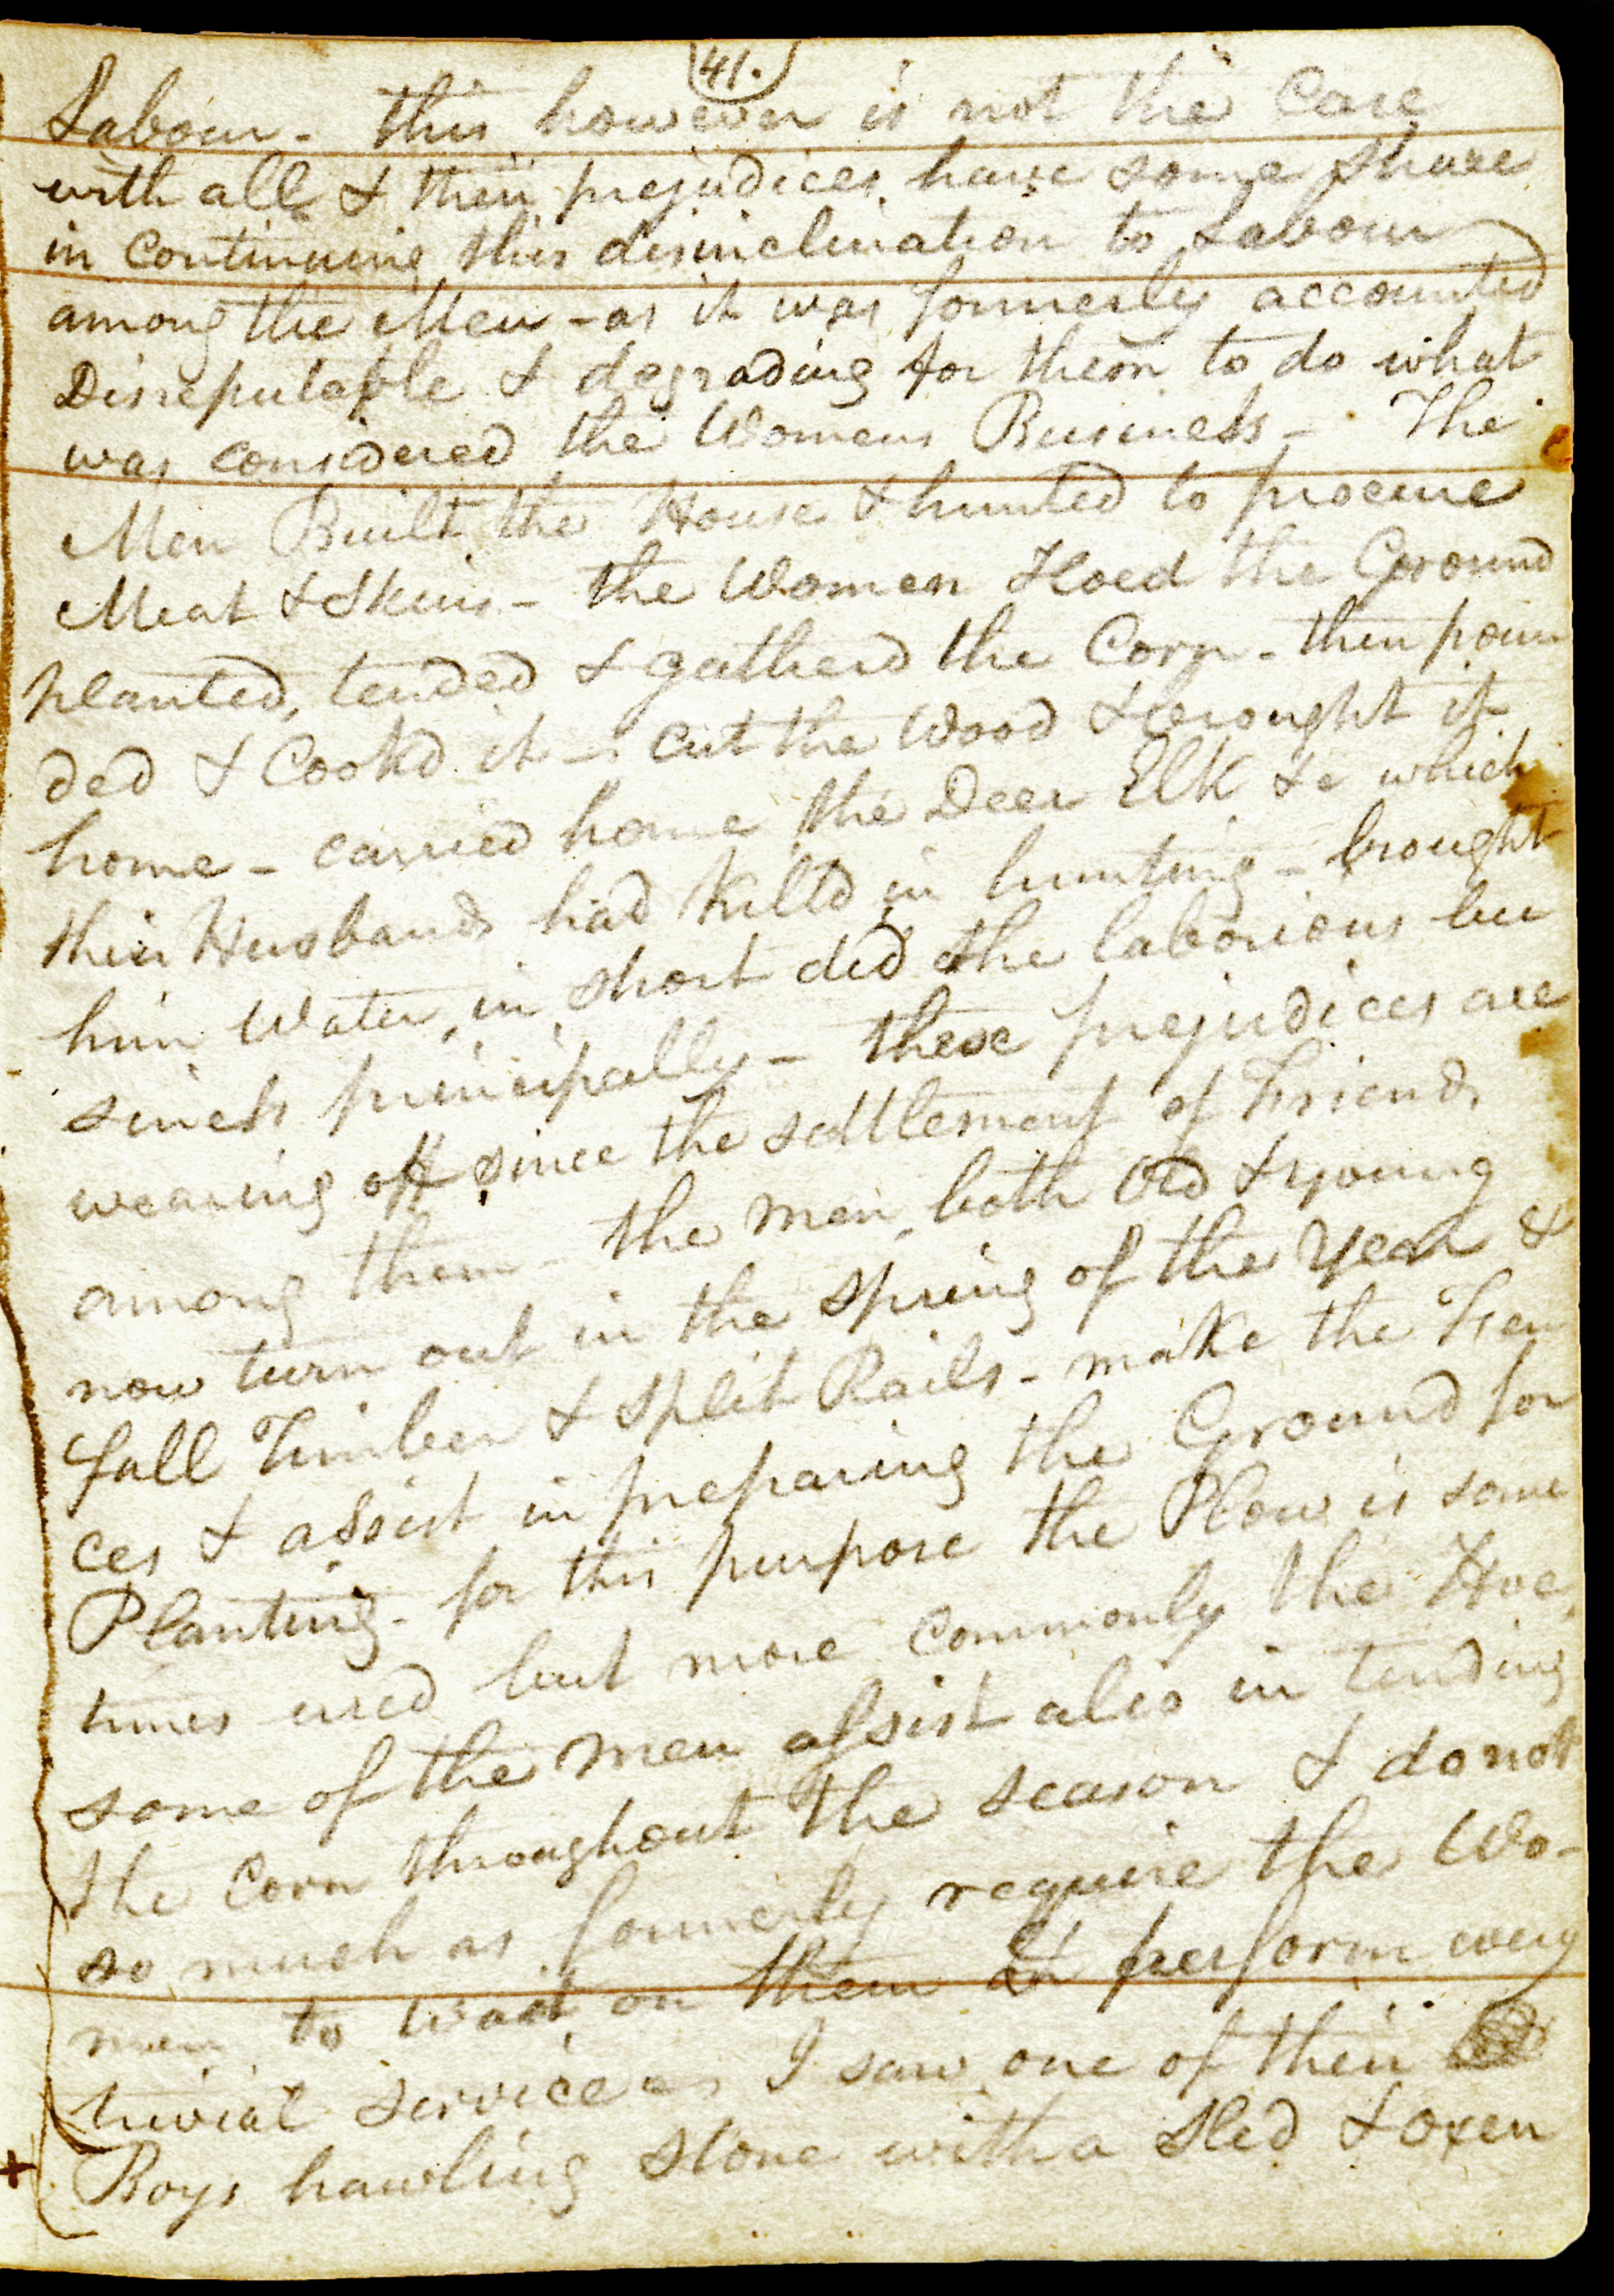 41.
Labour - this however is not the Case
with all & their prejudices have some share
in continuing this disinclination to Labour
among the Men - as it was formerly accounted
Disreputable & degrading for them to do what
was considered the Womens Business - The
Men Built the House & hunted to procure
Meat & Skins - the Women Hoed the Ground
planted, tended & gatherd the Corn - then poun
ded & Cookd it - cut the Wood & brought it
home - carried home the Deer Elk &c which
their Husbands had killd in hunting - brought
him Water, in short did the laborious bu
siness principally - these prejudices are
wearing off since the settlement of Friends
among them - the men, both Old & young
now turn out in the spring of the Year &
fall Timber & split Rails - make the Fen
ces & assist in preparing the Ground for
Planting - for this purpose the Plow is some
times used but more commonly the Hoe,
some of the men assist also in tending
the Corn throughout the season & do not
so much as formerly require the Wo-
men to wait on them & perform every
trivial service - I saw one of their
Boys hawling stone with a Sled & Oxen